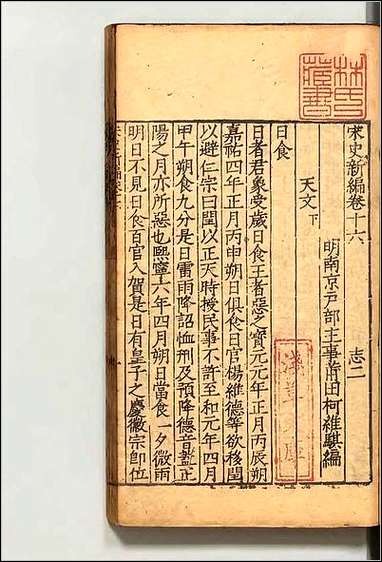 宋史新編卷十六
志二
明南京戶部主事莆田柯維騏編
天文下
日食
日者君象受歲日食王者惡之寳元元年正月丙辰朔
嘉祐四年正月丙申朔日俱食日官楊維德等欲移閏
以避仁宗曰閏以正天時授民事不許至和元年四月
甲午朔食九分是日雷雨降詔恤刑及預降德音盖正
陽之月亦所惡也熙寧六年四月朔日當食一夕微雨
明日不見日食百官入賀是日有皇子之慶徽宗卽位
林氏藏書
淺草文庫